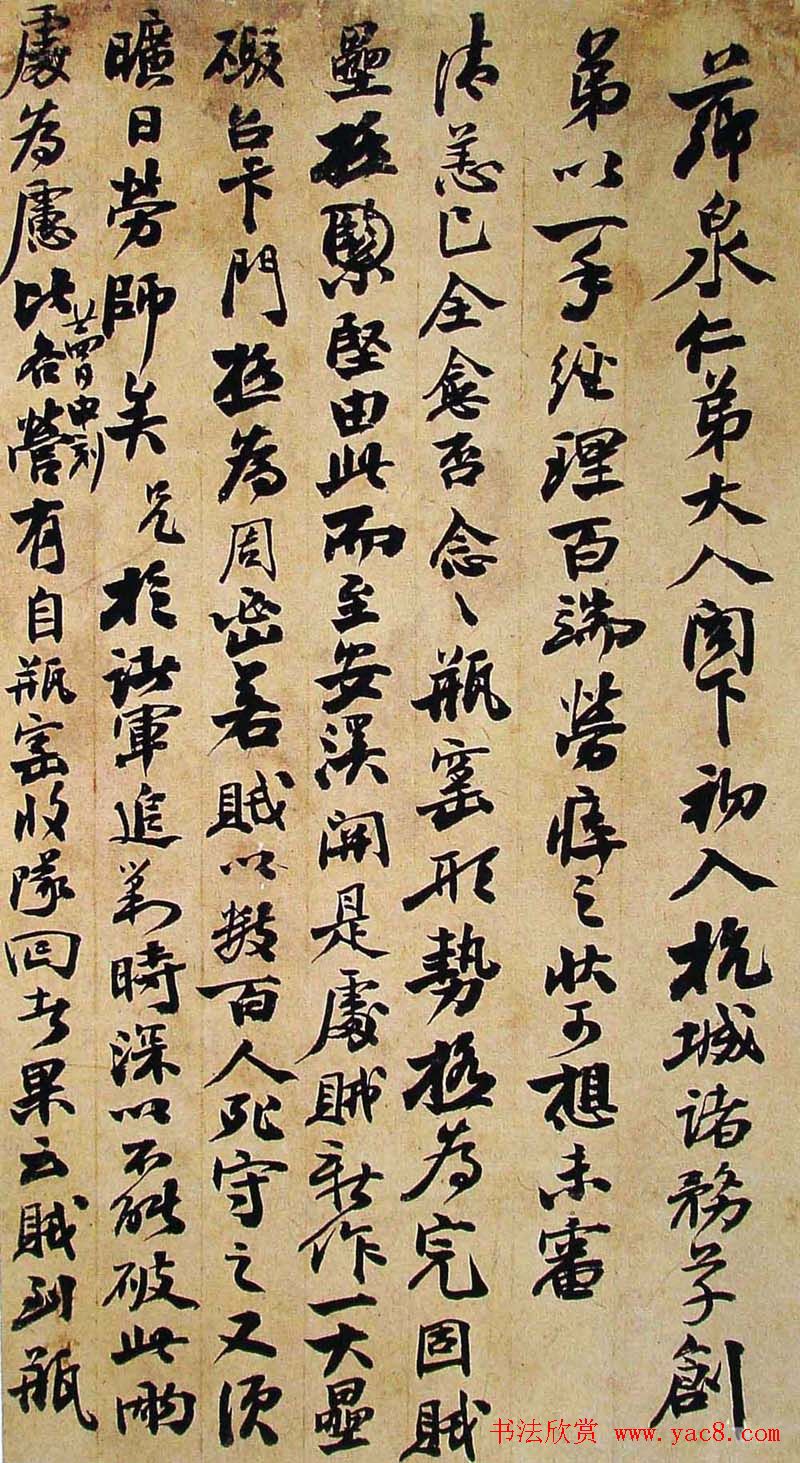 薌泉仁弟大人閣下初入杭城諸務草創
弟以一手經理百端勞瘁之狀可想未審
清恙已全愈否念〻瓶窰形勢極為完固賊
壘極緊堅由此而至安溪關是處賊新作一大壘
礮台卡門極為周密若賊以數百人死守之又須
曠日勞師矣兄於諸軍追剿時深以不能破此兩
處為慮比各營有自瓶窰收隊回者果云賊到瓶
廿四日申刻
书法欣赏 www.yac8.com